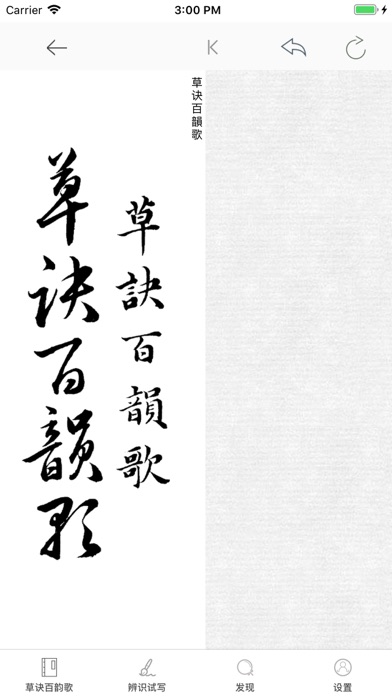 Carrier 3:00 PM
草诀百韻歌
草訣百韻歌
草诀百韻歌
草诀百韵歌 辨识试写 发现 设置